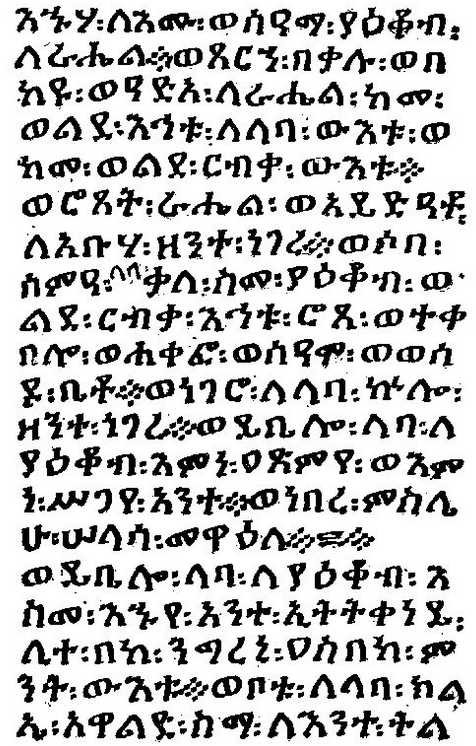 እኅሃ፡ለእሙ፡ወሰዓማ፡ያዕቆብ፡
ለራሔል፨ወጸርኀ፡በቃሉ፡ወበ
ከየ፡ወዓድአ፡ለራሔል፡ከመ፡
ወልደ፡እኅቱ፡ለላባ፡ውእቱ፡ወ
ከመ፡ወልደ፡ርብቃ፡ውእቱ፨
ወሮጸት፡ራሔል፡ወአይድዓቶ፡
ለአቡሃ፡ዘንተ፡ነገረ፨ወሶበ፡
ሰምዓ፡ላባ፡ቃለ፡ስሙ፡ያዕቆብ፡ወ
ልደ፡ርብቃ፡እኅቱ፡ሮጸ፡ወተቀ
በሎ፡ወሐቀፎ፡ወሰዓሞ፡ወወሰ
ዶ፡ቤቶ፨ወነገሮ፡ለላባ፡ኵሎ፡
ዘንተ፡ነገረ፨ወይቤሎ፡ላባ፡ለ
ያዕቆብ፡እምነ፡ዐጽምየ፡ወእም
ነ፡ሥጋየ፡አንተ፨ወነበረ፡ምስሌ
ሁ፡ሠላሳ፡መዋዕለ፨፨
ወይቤሎ፡ላባ፡ለያዕቆብ፡እ
ስመ፡እኁየ፡አንተ፡ኢትትቀነይ፡
ሊተ፡በከ፡ንግረኒ፡ዐስበከ፡ም
ንት፡ውእቱ፨ወቦቱ፡ለላባ፡ክል
ኤ፡አዋልድ፡ስማ፡ለእንተ፡ትል